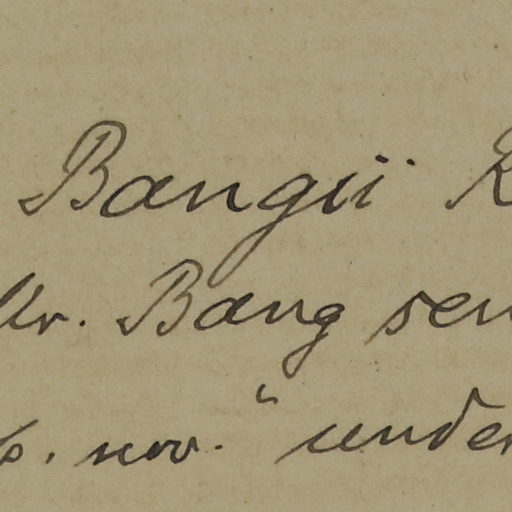 Bangii
Bang sen
nov." under